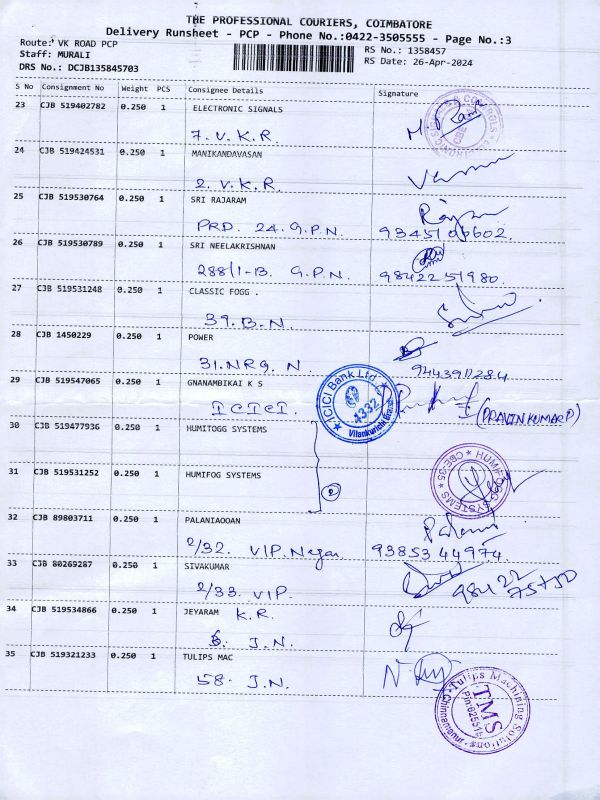 THE PROFESSIONAL COURIERS, COIMBATORE
Delivery Runsheet - PCP - Phone No.:0422-3505555 - Page No.:3
Route: VK ROAD PCP
Staff: MURALI
DRS No.: DCJB135845703
RS No.: 1358457
RS Date: 26-Apr-2024
S No Consignment No Weight PCS Consignee Details Signature
23 CJB 519402782 0.250 1 ELECTRONIC SIGNALS
7. V. K. R.
24 CJB 519424531 0.250 1 MANIKANDAVASAN
2. V. K. R.
25 CJB 519530764 0.250 1 SRI RAJARAM
PRD. 24. G.P.N.
26 CJB 519530789 0.250 1 SRI NEELAKRISHNAN
288/1-B. G.P.N. 9842251980.
27 CJB 519531248 0.250 1 CLASSIC FOGG .
39. B.N.
28 CJB 1450229 0.250 1 POWER
31. NRG. N.
29 CJB 519547065 0.250 1 GNANAMBIKAI K S
ICICI. ICICI Bank Ltd. 4332 Vilankurichi Branch (PRAVIN KUMAR P)
30 CJB 519477936 0.250 1 HUMITOGG SYSTEMS
31 CJB 519531252 0.250 1 HUMIFOG SYSTEMS
2 HUMIFOGG SYSTEMS CBE-35
32 CJB 89803711 0.250 1 PALANIAOOAN
2/32. VIP. Nagar 9385344974.
33 CJB 80269287 0.250 1 SIVAKUMAR
2/33. VIP.
34 CJB 519534866 0.250 1 JEYARAM K.R.
6. J.N.
35 CJB 519321233 0.250 1 TULIPS MAC
58. J.N.
Tulips Machining Solutions
TMS